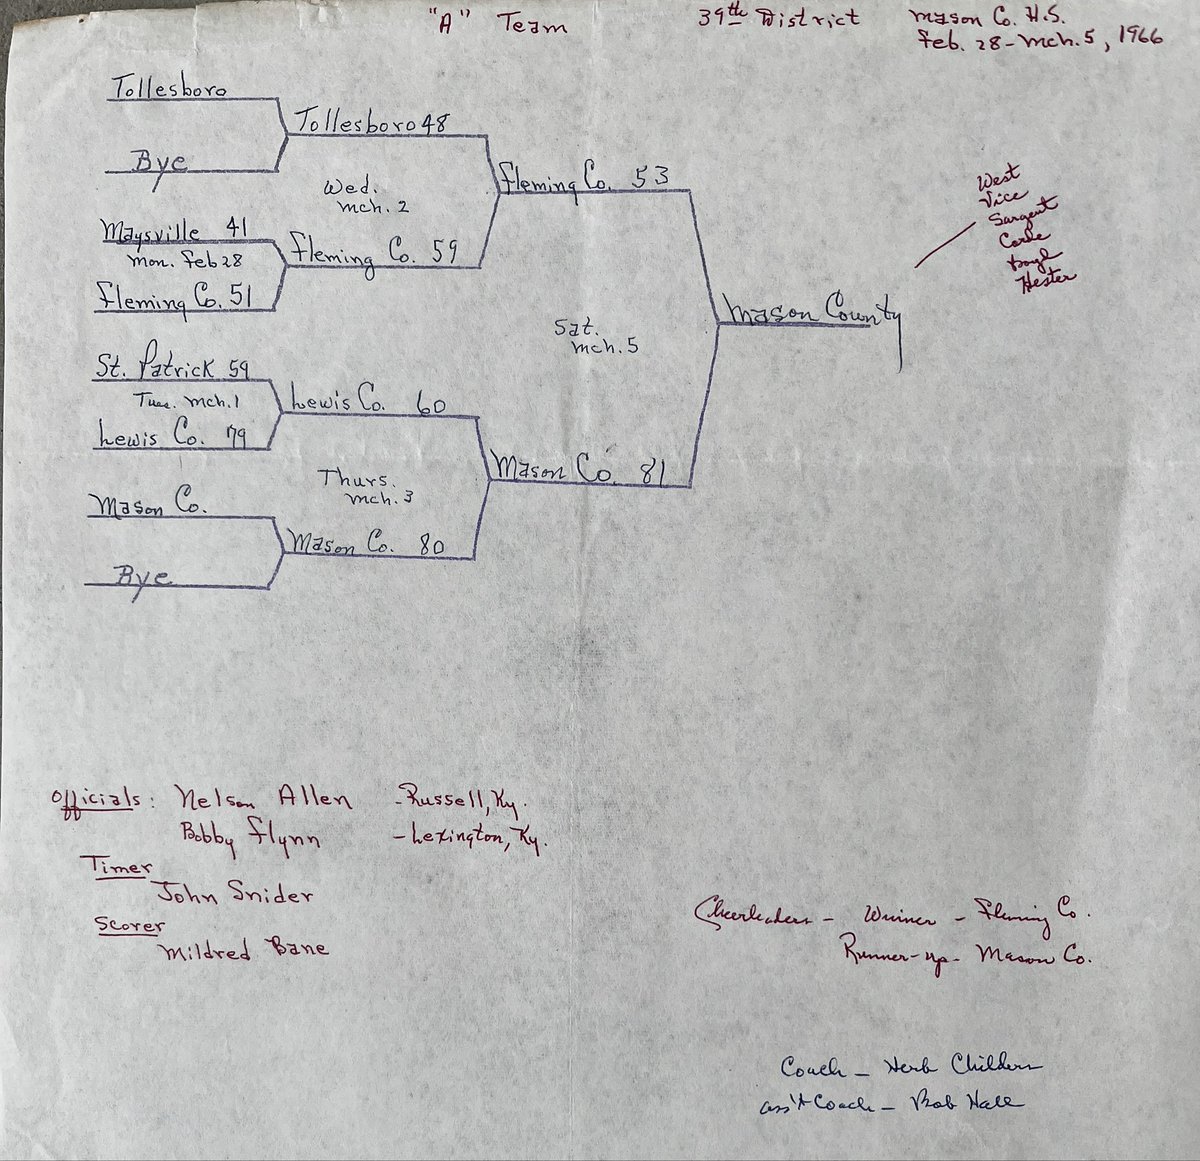 "A" Team 39th District Mason Co. H.S.
Feb. 28 - Mch. 5, 1966
Tollesboro
Tollesboro 48
Bye
Wed.
Mch. 2
Fleming Co. 53
Maysville 41
Mon. Feb 28
Fleming Co. 59
Fleming Co. 51
West
Vice
Sargent
Hester
Mason County
Sat.
Mch. 5
St. Patrick 59
Tues. Mch. 1
Lewis Co. 60
Lewis Co. 79
Thurs.
Mch. 3
Mason Co. 81
Mason Co.
Mason Co. 80
Bye
Officials: Nelson Allen - Russell, Ky.
Bobby Flynn - Lexington, Ky.
Timer
John Snider
Scorer
Mildred Bane
Cheerleaders - Winner - Fleming Co.
Runner-up - Mason Co.
Coach - Herb Childers
Ass't Coach - Bob Hall